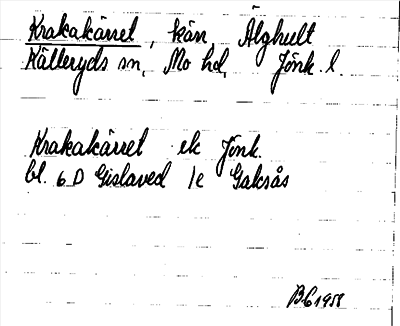 Krakakärret, kärr, Älghult
Källeryds sn, Mo hd, Jönk. l.
Krakakärret ek Jönk.
bl. 6 D Gislaved 1e Galcsås
BE 1958